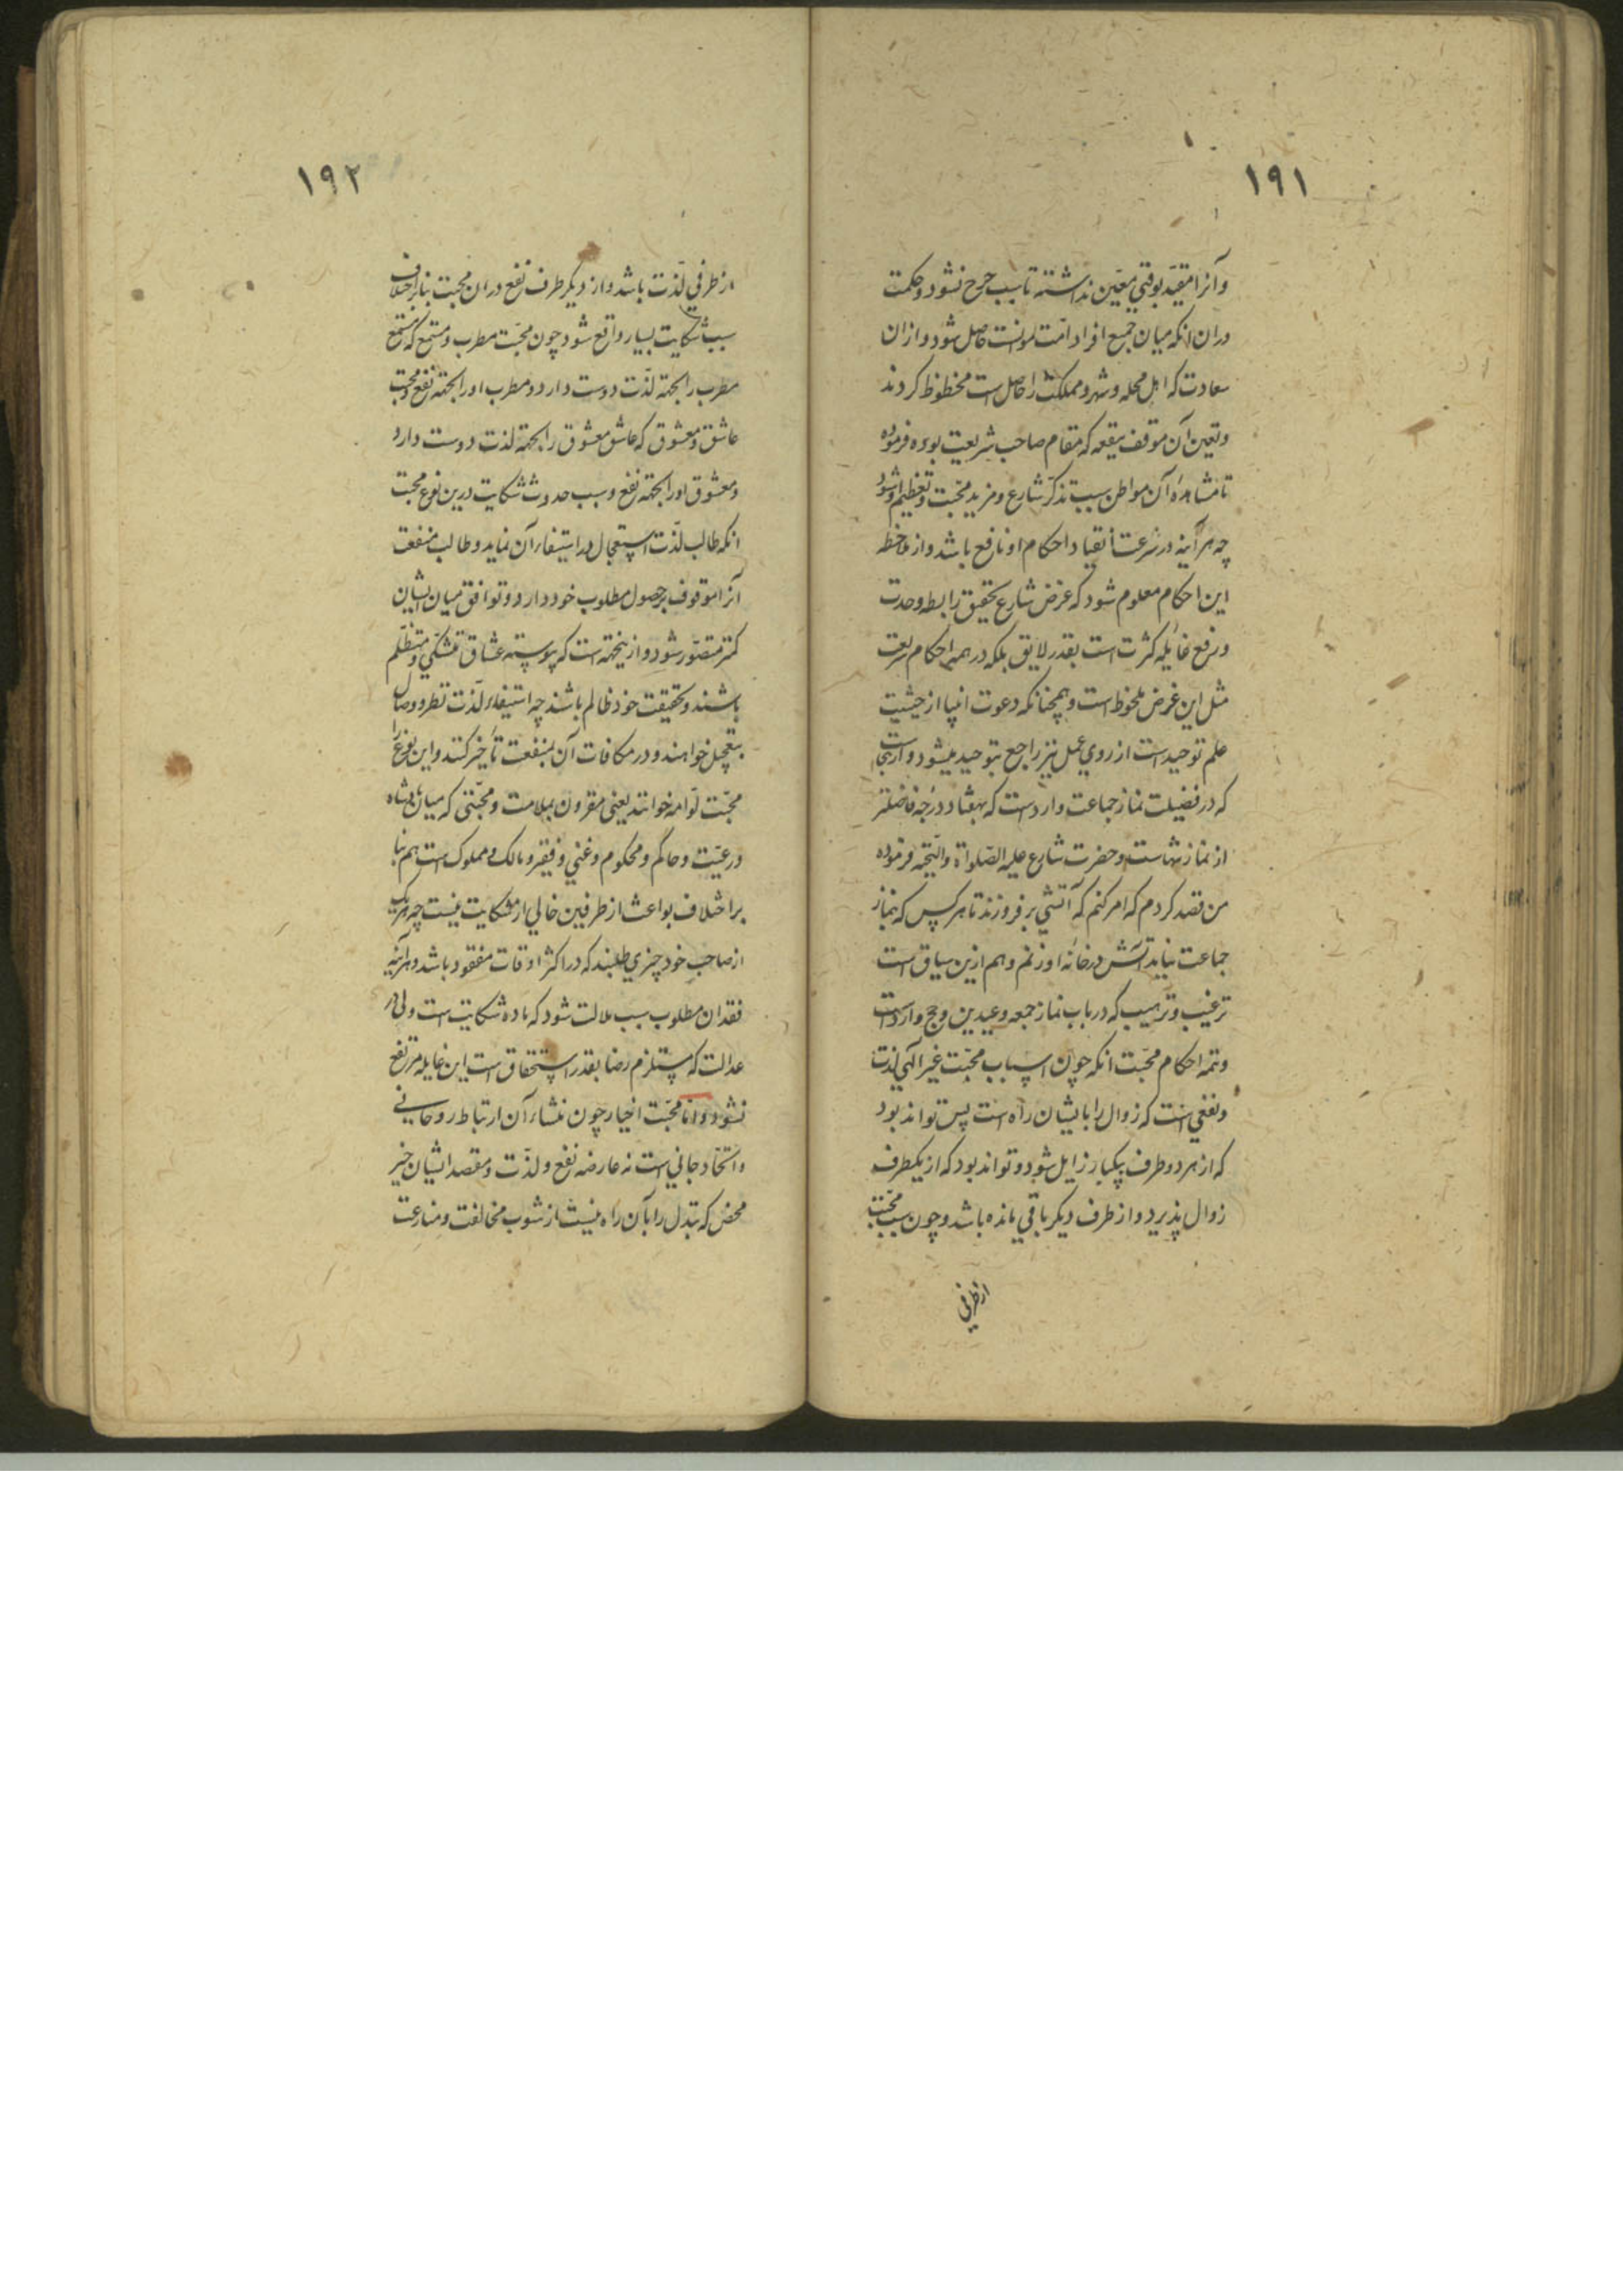 ۱۹۱
وآنرا مقید بوقتی معین نداشته تا سبب حرج نشود و حکمت
دران انکه میان جمیع افراد امّت موانست حاصل شود و ازان
سعادت که اهل محله و شهر و مملکت را حاصل است محظوظ کردند
وتعین آن موقف ببقعه که مقام صاحب شریعت بوده فرموده
تا مشاهدهٔ آن مواطن سبب تذکّر شارع و مزید محبّت و تعظیم او شود
چه هر آینه در سرعت انقیاد احکام او نافع باشد و از ملاحظه
این احکام معلوم شود که غرض شارع تحقیق رابطه وحدت
ورفع غائله کثرت است بقدر لایق بلکه در همه احکام شریعت
مثل این غرض ملحوظ است و همچنانکه دعوت انبیا از حیثیت
علم توحید است از روی عمل نیز راجع بتوحید میشود و ازینجاست
که در فضیلت نماز جماعت وارد است که بهفتاد درجه فاضلتر
از نماز تنهاست و حضرت شارع علیه الصّلواة والتّحیه فرموده
من قصد کردم که امر کنم که آتشی بر فروزند تا هر کس که بنماز
جماعت نیاید آتش در خانه او زنم و هم ازین سیاق است
ترغیب و ترهیب که در باب نماز جمعه و عیدین و حج وارد است
وتتمه احکام محبّت انکه چون اسباب محبّت غیر الهی لذت
ونفعی است که زوال را بایشان راه است پس تواند بود
که از هر دو طرف بیکبار زایل شود و تواند بود که از یکطرف
زوال پذیرد و از طرف دیکر باقی مانده باشد و چون سبب محبّت
از طرفی
۱۹۲
از طرفی لذّت باشد و از دیکر طرف نفع دران محبت بنابر اختلاف
سبب شکایت بسیار واقع شود چون محبّت مطرب و مستمع که مستمع
مطرب را بجهة لذّت دوست دارد و مطرب او را بجهة نفع و محبت
عاشق و معشوق که عاشق معشوق را بجهة لذت دوست دارد
ومعشوق او را بجهة نفع و سبب حدوث شکایت درین نوع محبت
انکه طالب لذّت استعجال در استیفاء آن نماید و طالب منفعت
آنرا موقوف بر حصول مطلوب خود دارد و توافق میان ایشان
کمتر متصوّر شود و ازینجهة است که پیوسته عشاق متشکّی و متظلّم
باشند و بحقیقت خود ظالم باشند چه استیفاء لذّت نظر و وصال
بتعجیل خواهند و در مکافات آن بمنفعت تأخیر کنند و این نوع را
محبّت لوّامه خوانند یعنی مقرون بملامت و محبّتی که میان پادشاه
ورعیّت و حاکم و محکوم و غنی و فقیر و مالک و مملوک است هم بنا
بر اختلاف بواعث از طرفین خالی از شکایت نیست چه هر یک
از صاحب خود چیزی طلبند که در اکثر اوقات مفقود باشد و هر آینه
فقدان مطلوب سبب ملالت شود که ماده شکایت است و لی در
عدالت که مستلزم رضا بقدر استحقاق است این غایله مرتفع
نشود و اما محبّت اخیار چون منشاء آن ارتباط روحانی
واتحّاد جانی است نه عارضه نفع و لذّت و مقصد ایشان خیر
محض که تبدل را بآن راه نیست از شوب مخالفت و منازعت